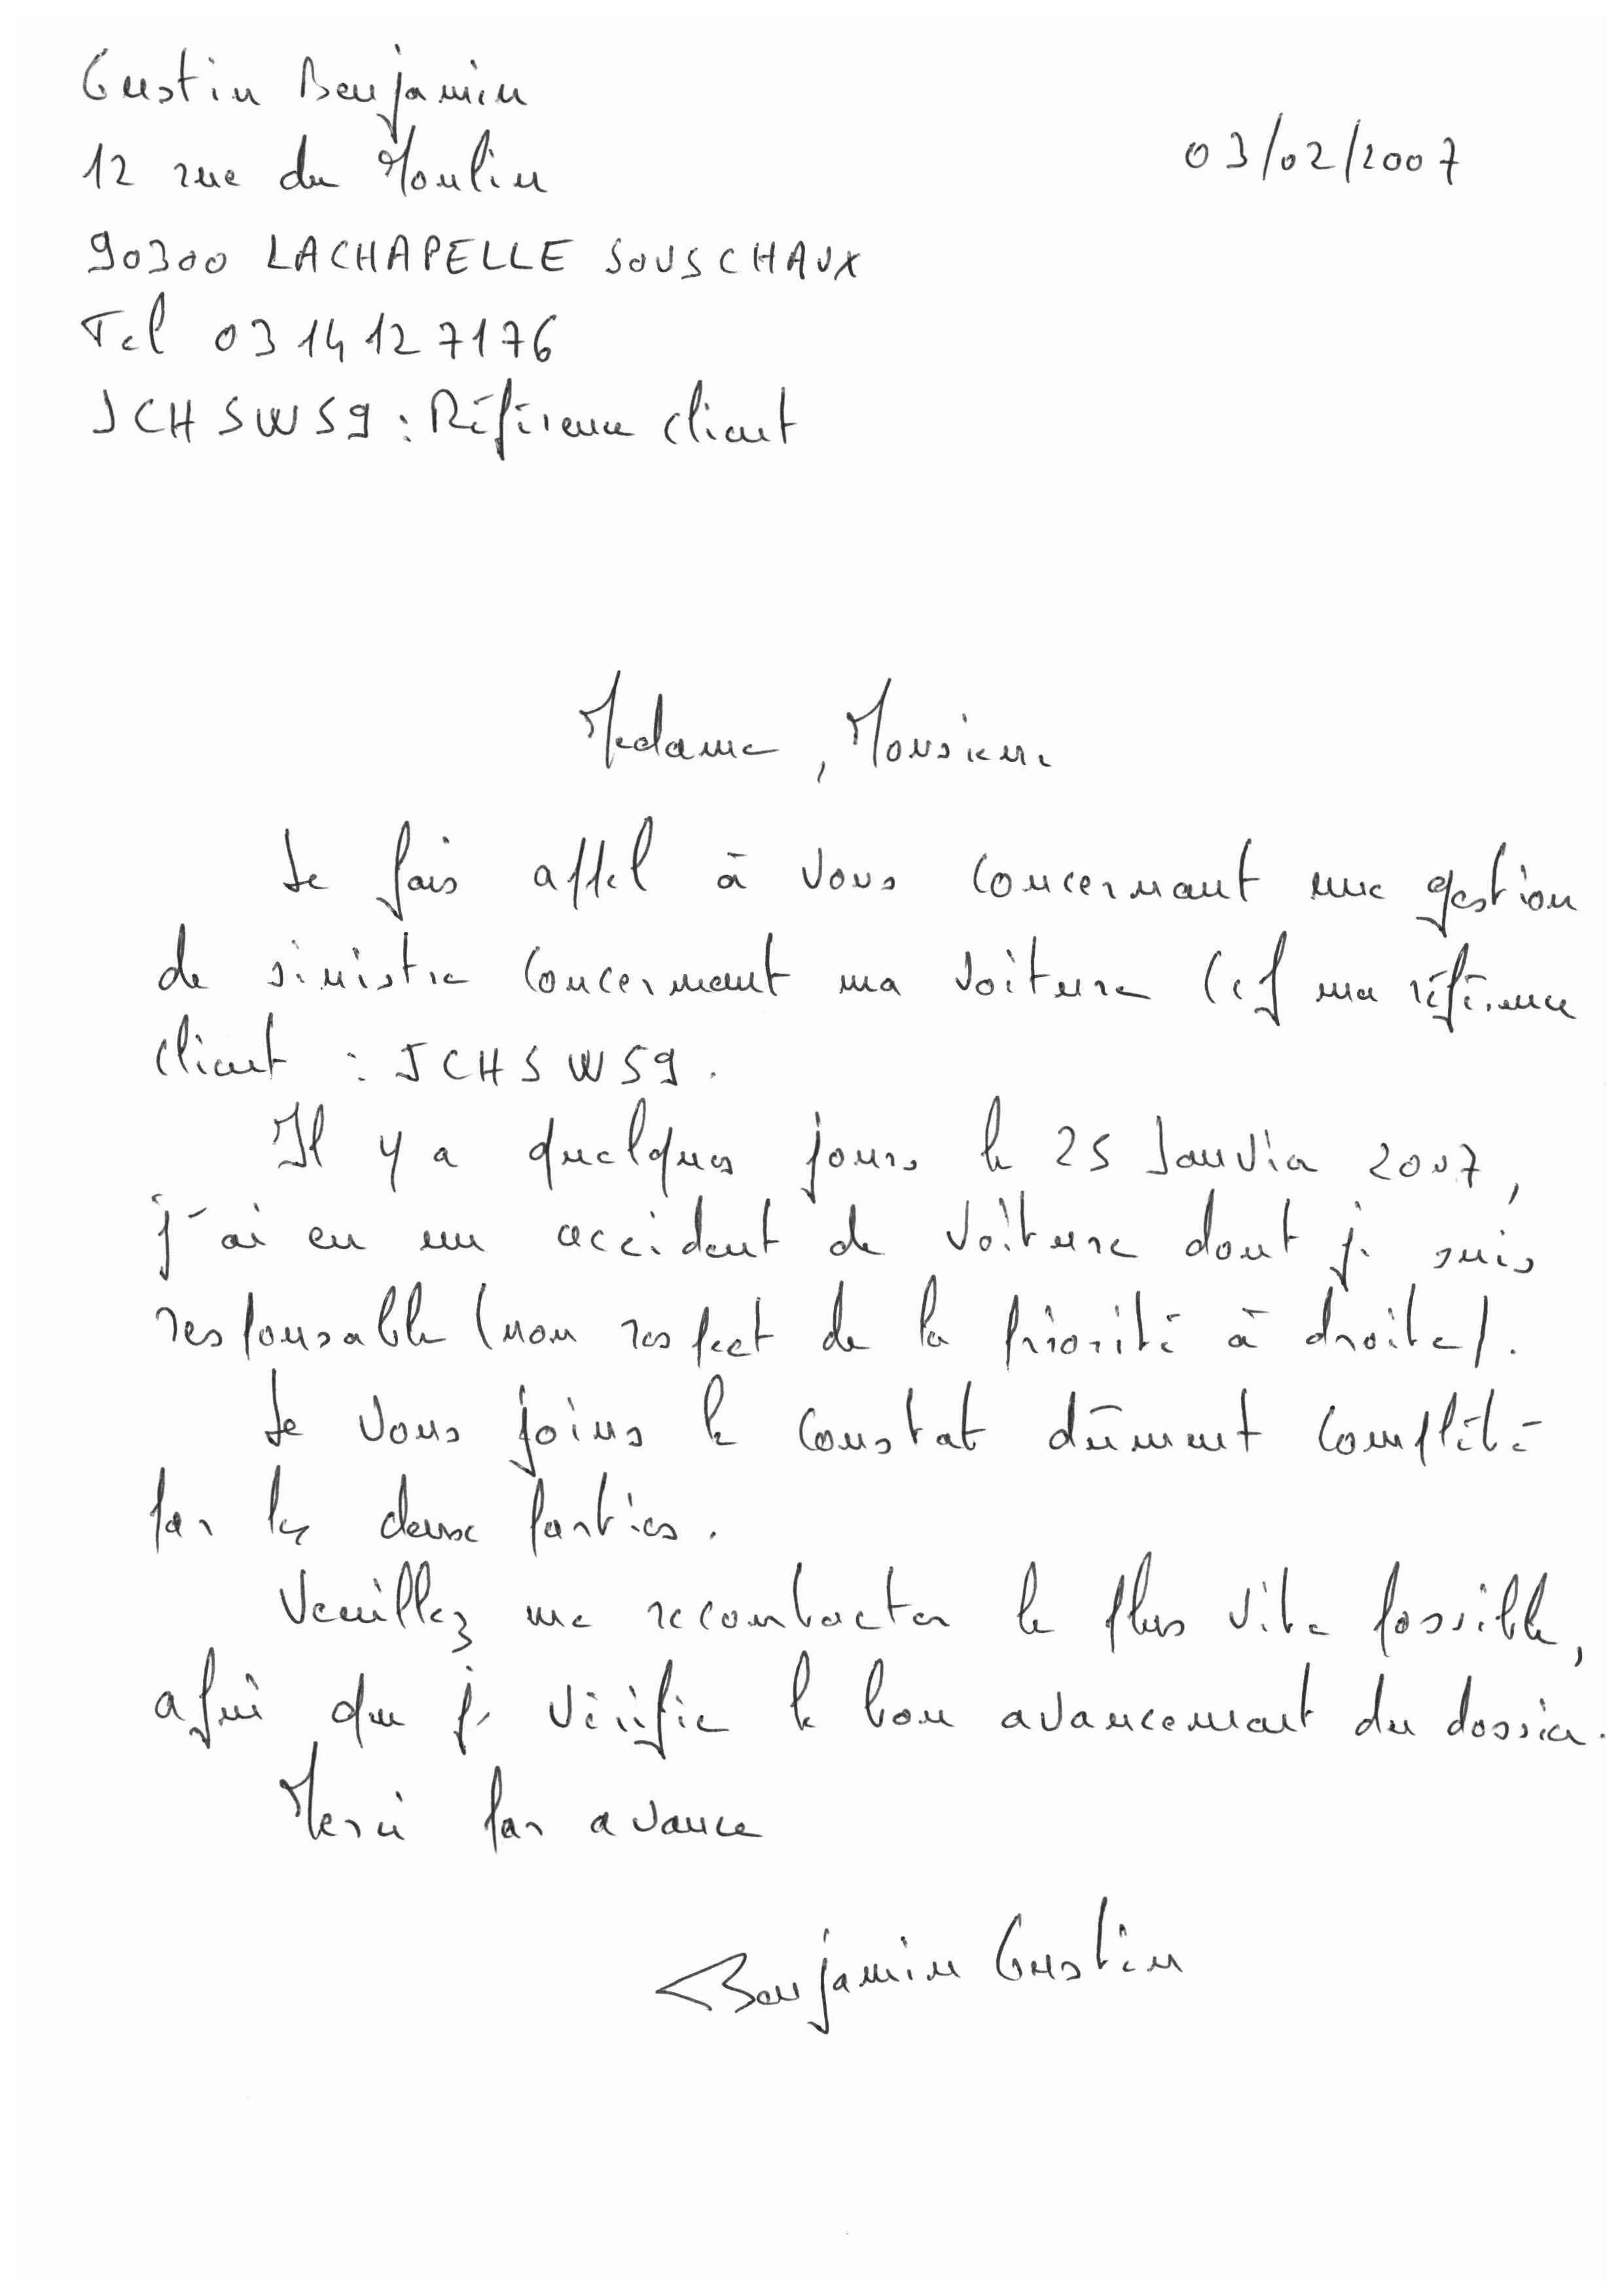 Gustin Benjamin
03/02/2007
12 rue du Moulin
90300 LACHAPELLE SOUS CHAUX
Tel 03 14 12 71 76
JCHSW59 : Référence client
Madame, Monsieur
Je fais appel à vous concernant une gestion
de sinistre concernant ma voiture (cf ma référence
client : JCHSW59.
Il y a quelques jours le 25 Janvier 2007,
j'ai eu un accident de voiture dont je suis
responsable (non respect de la priorité à droite).
Je vous joins le constat dûment complété
par les deux parties.
Veuillez me recontacter le plus vite possible,
afin que je vérifie le bon avancement du dossier.
Merci par avance
Benjamin Gustin